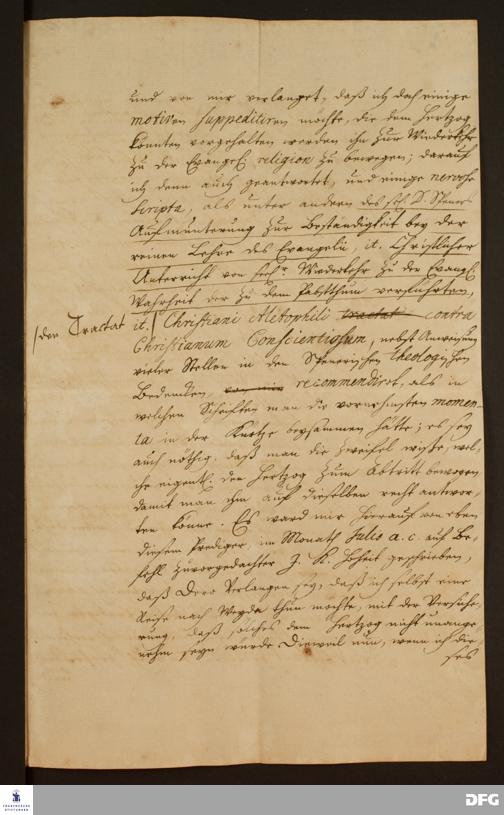 und von mir verlanget, daß ich doch einige
motiven suppeditiren möchte, die dem Hertzog
könnten vorgehalten werden ihn zur Wiederkehr
zu der Evangel. religion zu bewegen; darauf
ich denn auch geantwortet, und einige nervose
scripta, als unter andern des sel. D. Speners
Aufmunterung zur Beständigkeit bey der
reinen Lehre des Evangelii, it. Christlicher
Unterricht von seel. Wiederkehr zu der Evangel.
Wahrheit der zu dem Pabstthum verführten,
/den Tractat it. / Christiani Aletophili tractat contra
Christianum Conscientiosum, nebst Anweisung
vieler Stellen in den Spenerischen Theologischen
Bedencken, von mir recommendiret, als in
welchen Schriften man die vornehmsten momen-
ta in der Kürtze beysammen hätte; es sey
auch nöthig, daß man die Zweifel wiste, wel-
che eigentl. den Hertzog zum Abtritt bewogen
damit man ihm auf dieselben recht antwor-
ten könne. Es ward mir hierauf von eben
diesem Prediger im Monath Julio a. c. auf Be-
fehl zuvorgedachter J. K. Hoheit geschrieben,
daß Dero Verlangen sey, daß ich selbst eine
Reise nach Weyda thun möchte, mit der Versiche-
rung, daß solches dem Hertzog nicht unange-
nehm seyn würde. Dieweil nun, wenn ich die-
ses
FRANCKESCHE STIFTUNGEN
DFG